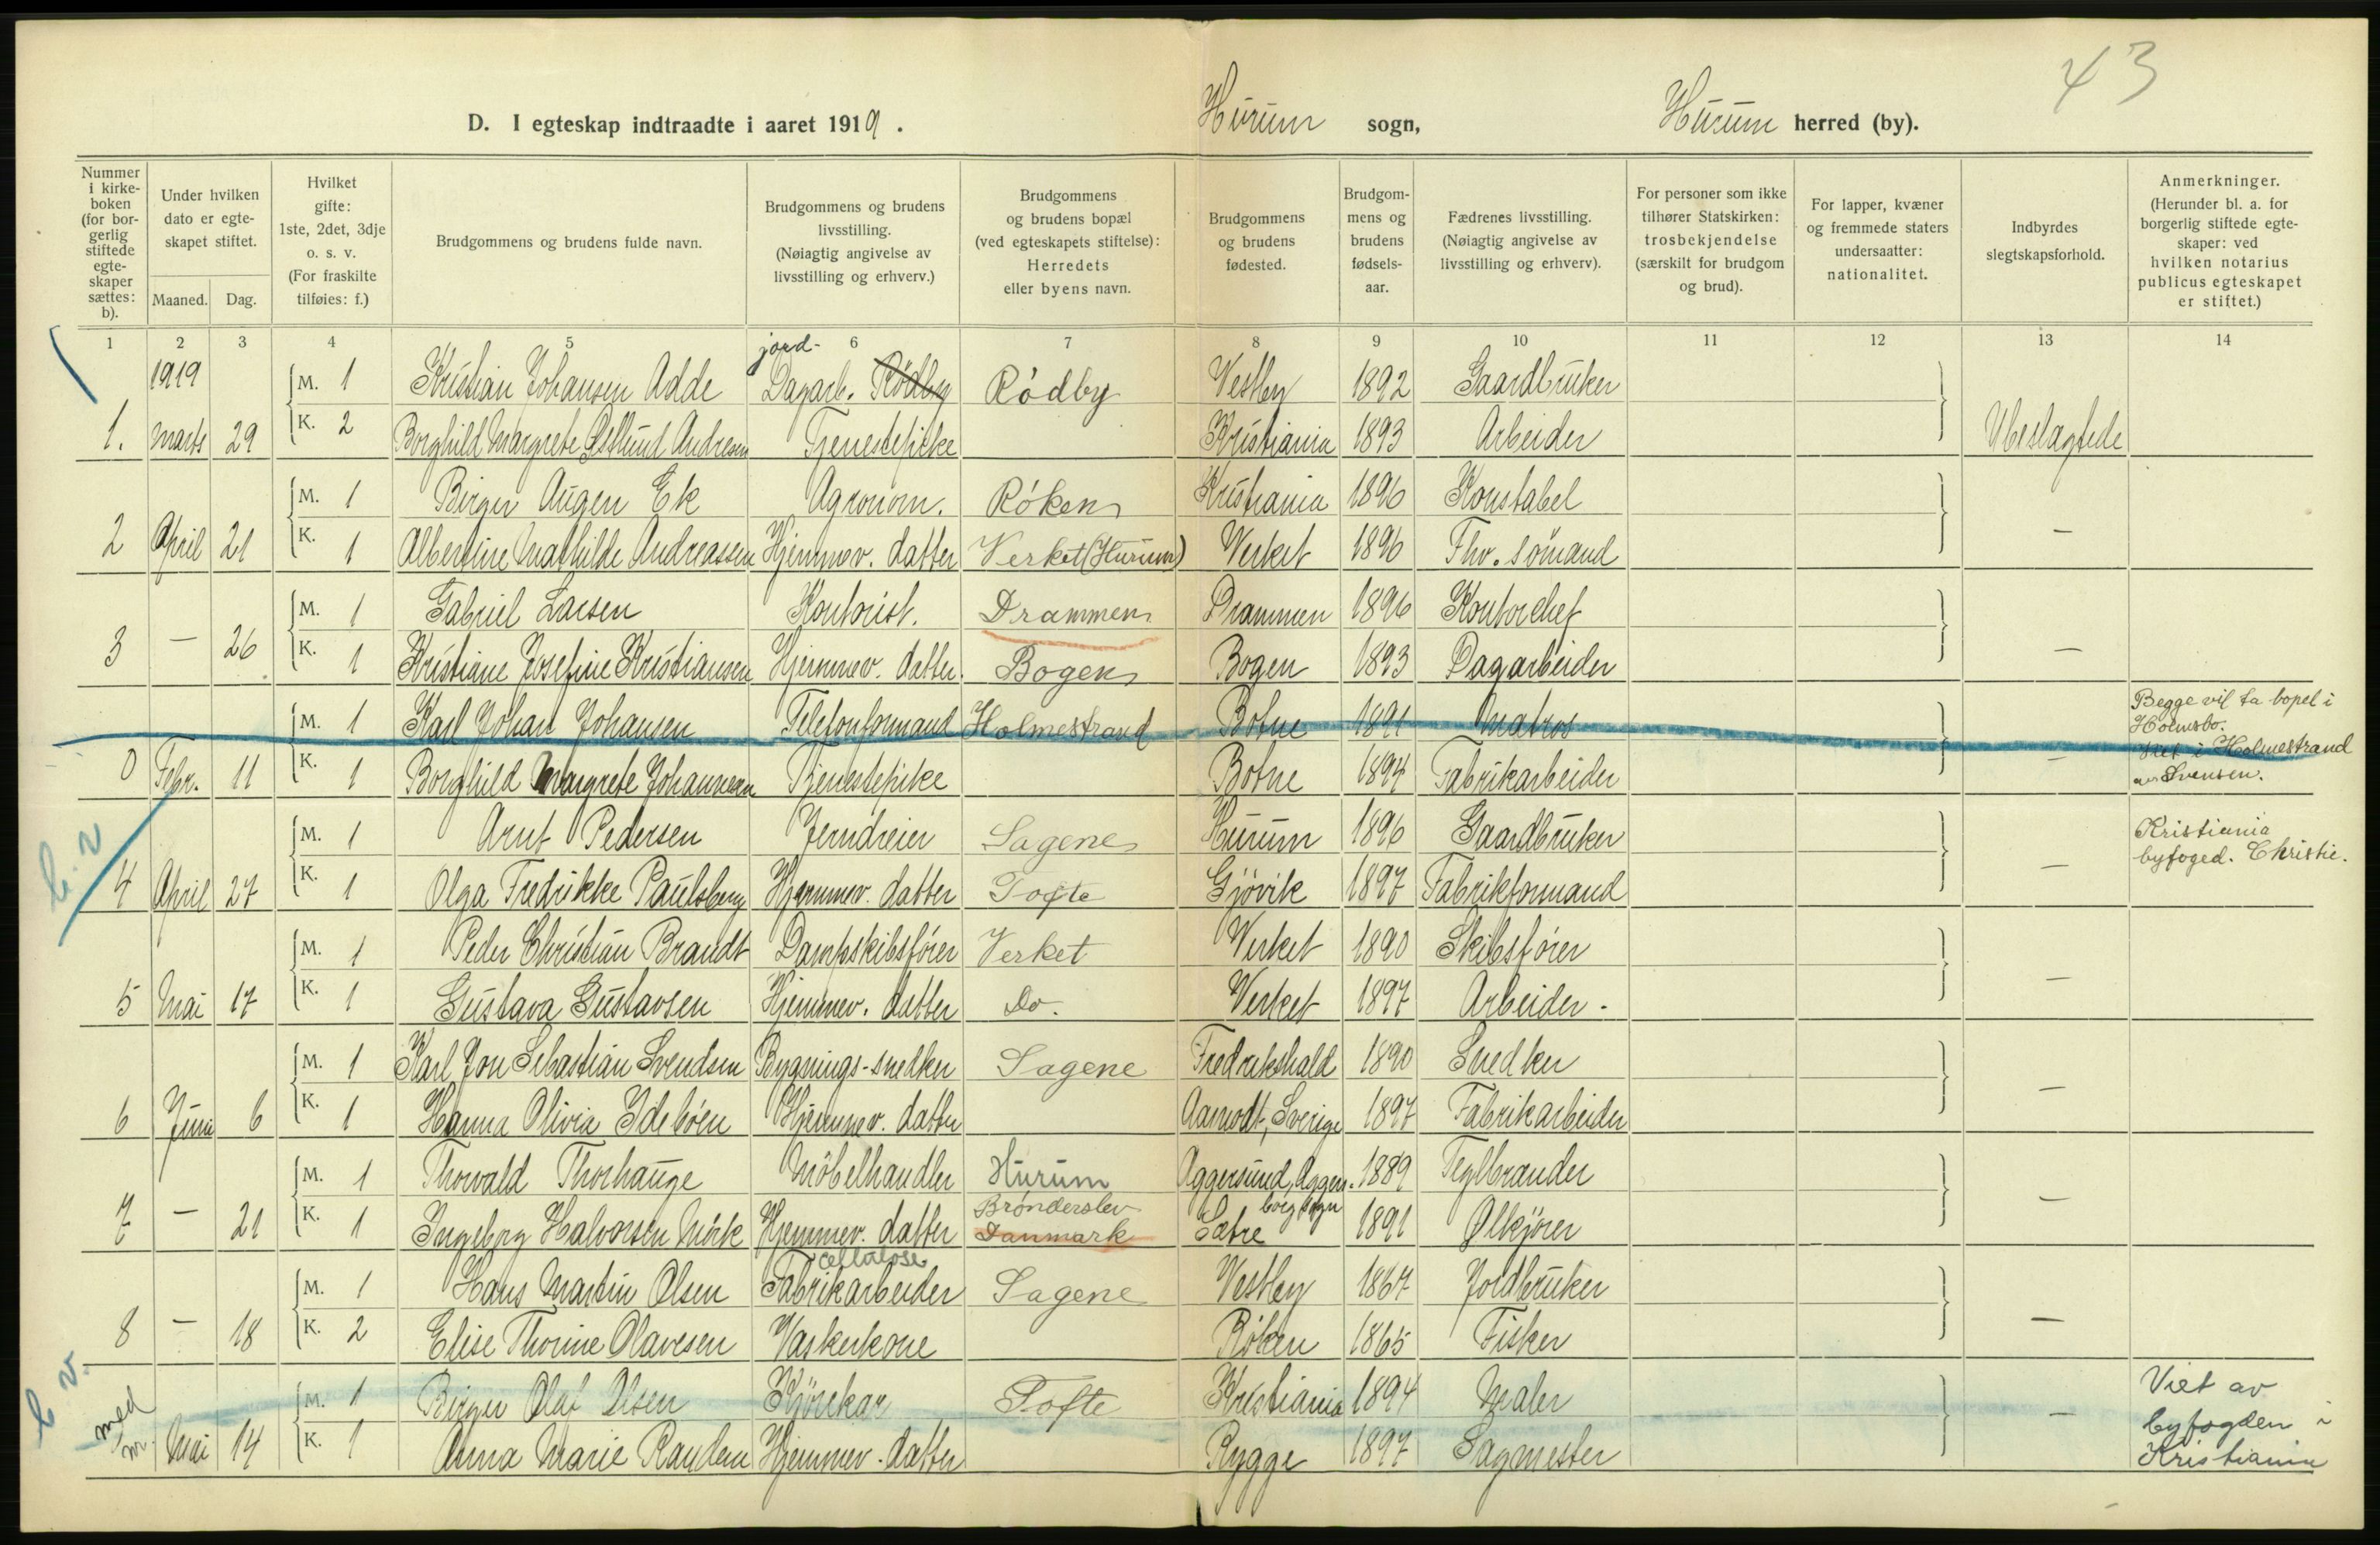 43
D. I egteskap indtraadte i aaret 1919. Hurum sogn, Hurum herred (by).
Nummer i kirke-boken (for bor-gerlig stiftede egte-skaper sættes: b).
Under hvilken dato er egte-skapet stiftet.
Maaned. Dag.
Hvilket gifte: 1ste, 2det, 3dje o. s. v. (For fraskilte tilføies: f.)
Brudgommens og brudens fulde navn.
Brudgommens og brudens livsstilling. (Nøiagtig angivelse av livsstilling og erhverv.)
Brudgommens og brudens bopæl (ved egteskapets stiftelse): Herredets eller byens navn.
Brudgommens og brudens fødested.
Brudgom-mens og brudens fødsels-aar.
Fædrenes livsstilling. (Nøiagtig angivelse av livsstilling og erhverv).
For personer som ikke tilhører Statskirken: trosbekjendelse (særskilt for brudgom og brud).
For lapper, kvæner og fremmede staters undersaatter: nationalitet.
Indbyrdes slegtskapsforhold.
Anmerkninger. (Herunder bl. a. for borgerlig stiftede egte-skaper: ved hvilken notarius publicus egteskapet er stiftet.)
1 2 3 4 5 6 7 8 9 10 11 12 13 14
jord-
1919 M. 1 Kristian Johansen Adde Dagarb. Rødby Rødby Vestby 1892 Gaardbruker
1. Marts 29 K. 2 Borghild Margrete Østlund Andresen Tjenestepike Kristiania 1893 Arbeider Ubeslagtede
M. 1 Birger Augen Ek Agronom. Røken Kristiania 1896 Konstabel
2 April 21 K. 1 Albertine Mathilde Andreassen Hjemmev. datter Verket (Hurum) Verket 1896 Fhv. sømand —
M. 1 Gabriel Larsen Kontorist. Drammen Drammen 1896 Kontorchef
3 — 26 K. 1 Kristiane Josefine Kristiansen Hjemmev. datter. Bogen Bogen 1893 Dagarbeider —
M. 1 Karl Johan Johansen Telefonformand Holmestrand Botne 1891 Matros Begge vil ta bopel i Holmsbo.
0 Febr. 11 K. 1 Borghild Margrete Johannesen Tjenestepike Botne 1894 Fabrikarbeider — Viet i Holmestrand av Svensen.
b. v
M. 1 Arnt Pedersen Jerndreier Sagene Hurum 1896 Gaardbruker Kristiania byfoged. Christie.
4 April 27 K. 1 Olga Fredrikke Paulsberg Hjemmev. datter Tofte Gjøvik 1897 Fabrikformand —
M. 1 Peder Christian Brandt Dampskibsfører Verket Verket 1890 Skibsfører
5 Mai 17 K. 1 Gustava Gustavsen Hjemmev. datter Do. Verket 1897 Arbeider. —
M. 1 Karl Jon Sebastian Svendsen Bygnings-snedker Sagene Fredrikshald 1890 Snedker
6 Juni 6 K. 1 Hanna Olivia Idebøen Hjemmev. datter Aamodt, Sverige 1897 Fabrikarbeider —
M. 1 Thorvald Thorhauge Møbelhandler Hurum Aggersund, Aggers- 1889 Teglbrænder
borg sogn
7 — 21 K. 1 Ingeborg Halvorsen Mørk Hjemmev. datter Brønderslev Danmark Sætre 1891 Ølkjører —
cellulose
M. 1 Hans Martin Olsen Fabrikarbeider Sagene Vestby 1867 Jordbruker
8 — 18 K. 2 Elise Thorine Olavesen Vaskerkone Røken 1865 Fisker —
b v.
M. 1 Birger Olaf Olsen Kjørekar Tofte Kristiania 1894 Maler Viet av
med m. Mai 14 K. 1 Anna Marie Raudem Hjemmev. datter Rygge 1897 Sagmester — byfogden i Kristiania